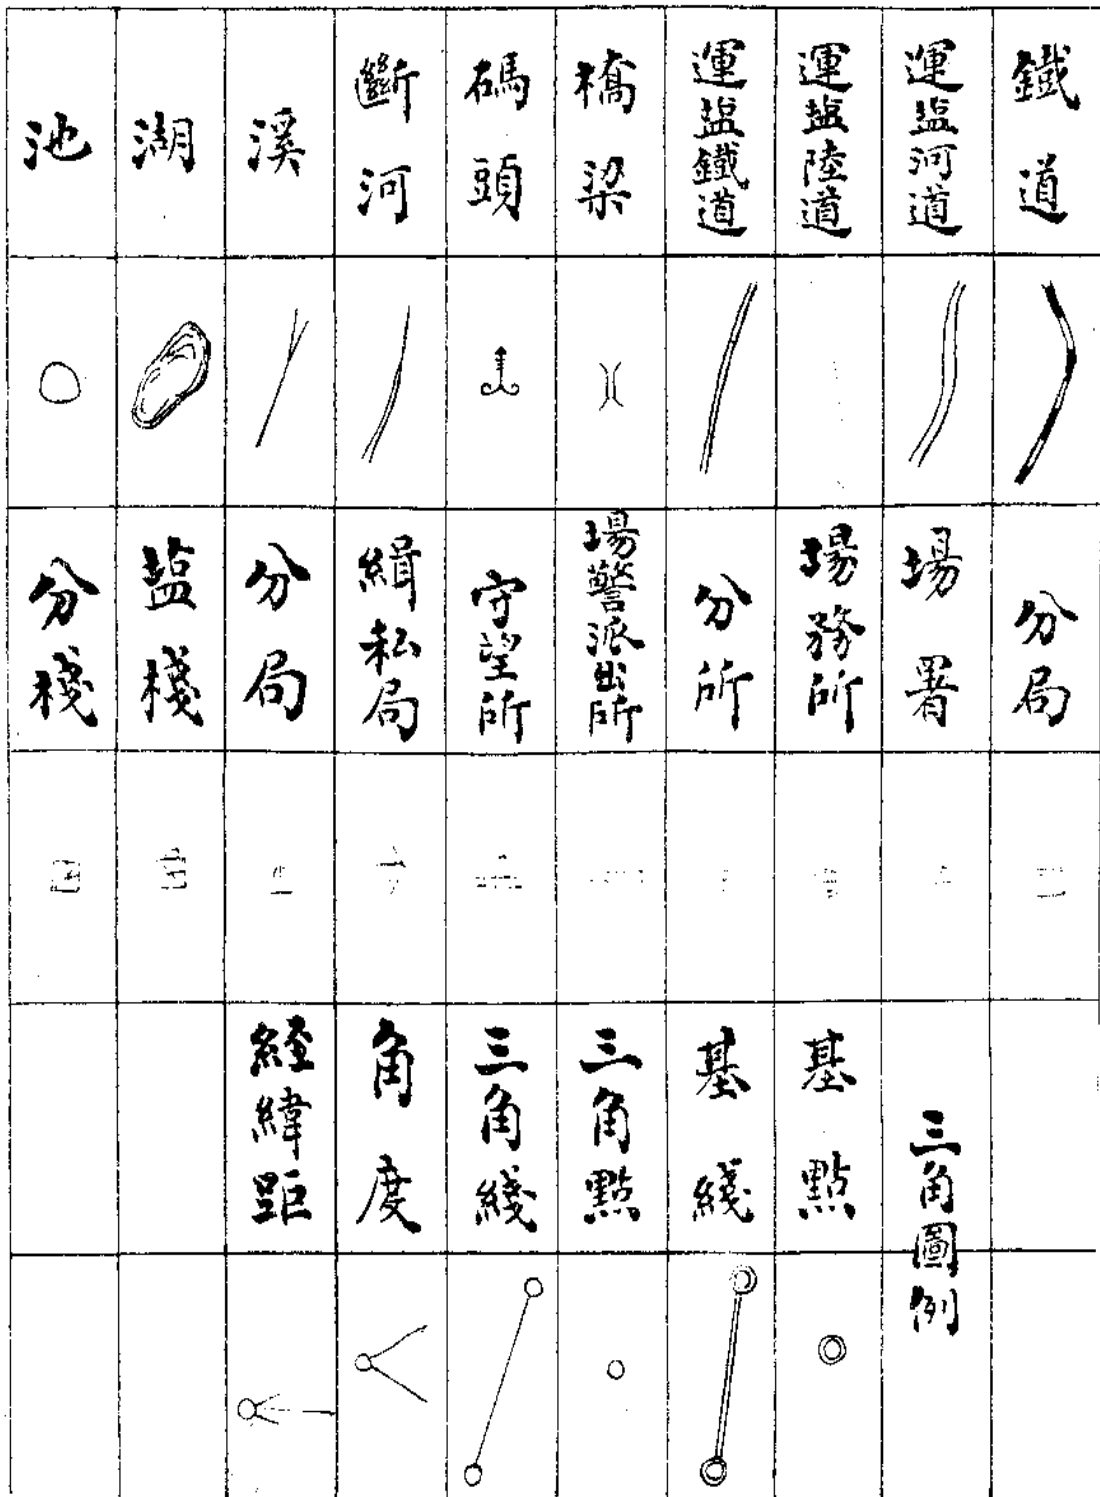 鐵道
運盐河道
運盐陸道
運盐鐵道
橋梁
碼頭
斷河
溪
湖
池
分局
場署
場務所
分所
場警派出所
守望所
緝私局
分局
盐棧
分棧
三角圖例
基點
基綫
三角點
三角綫
角度
經緯距